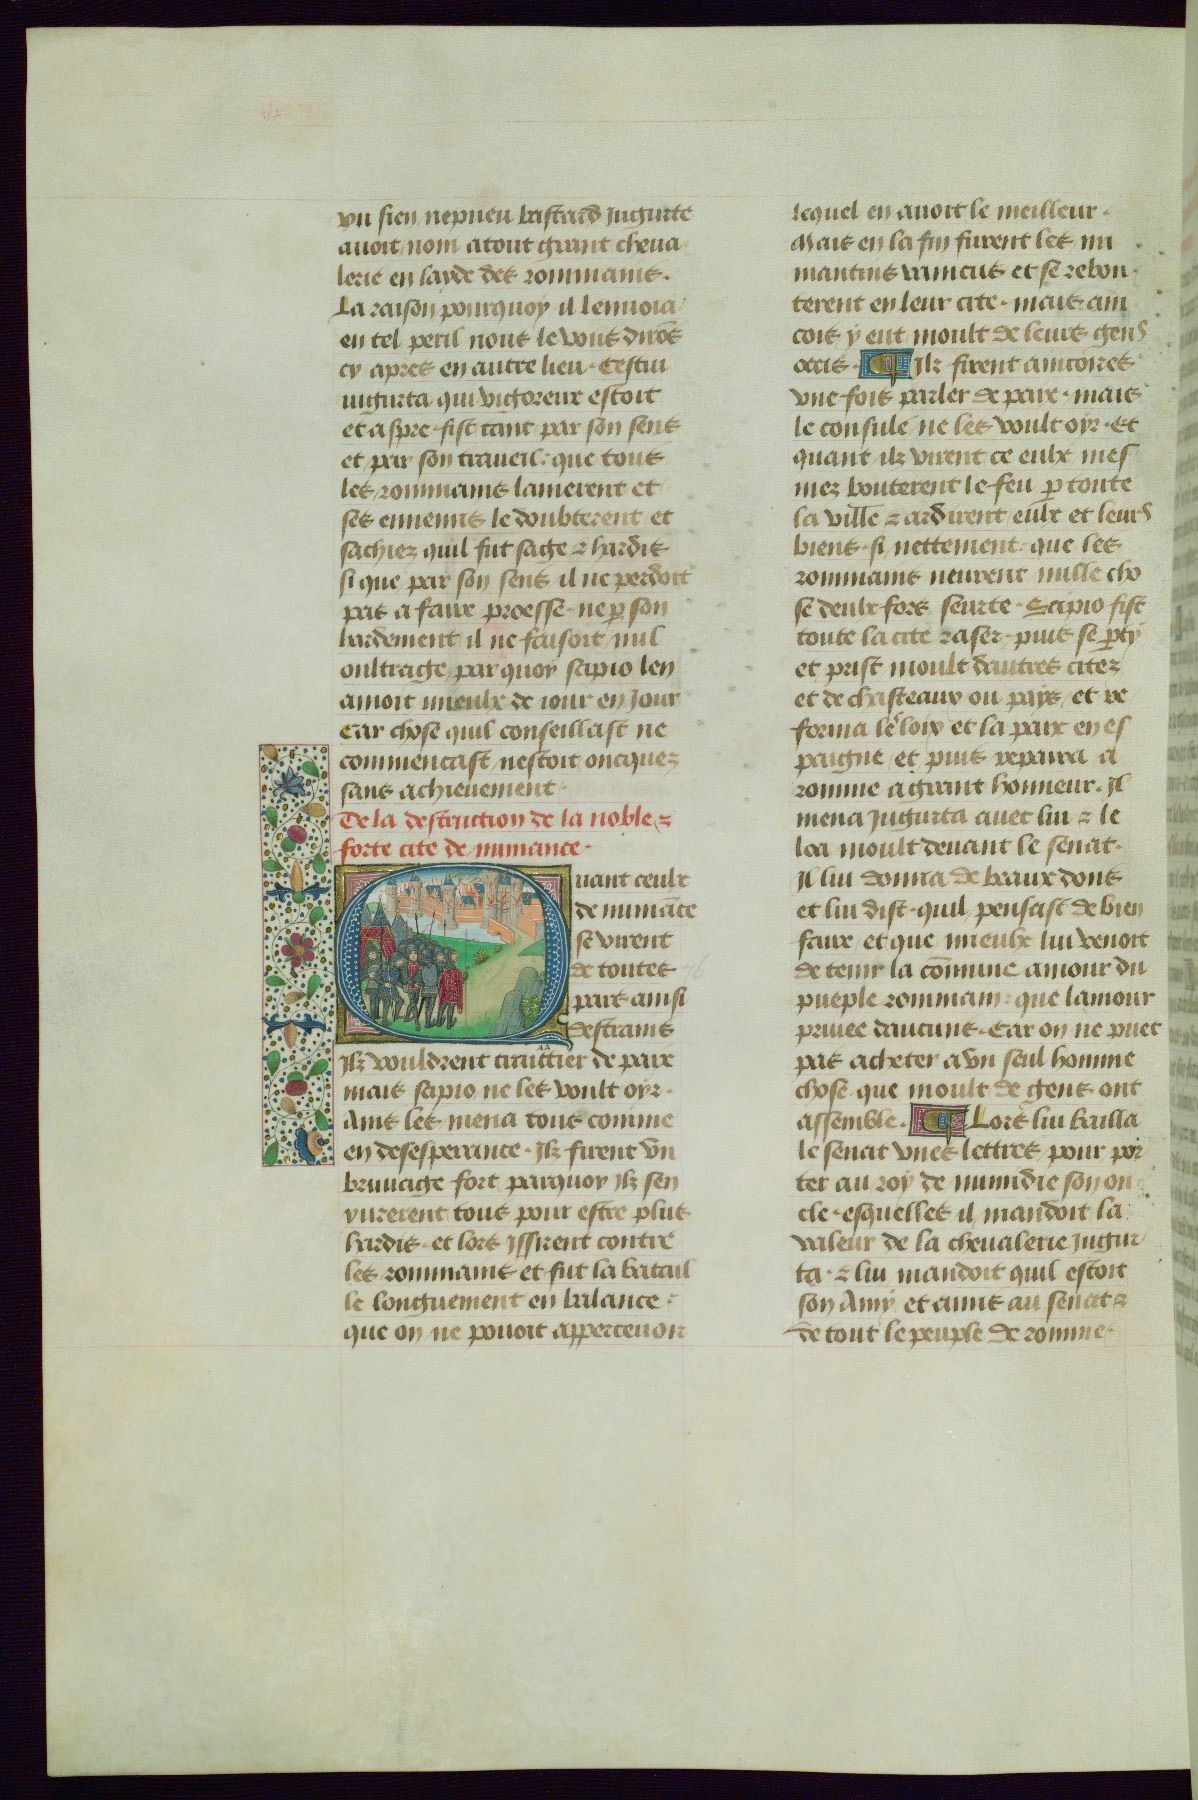 vn sien nepueu bastard Jugurte
auoit nom atout grant cheua
lerie en layde des rommains.
La raison pourquoy il lenuoia
en tel peril nous le vous dirōs
cy apres en autre lieu. Cestui
iugurta qui vigoreux estoit
et aspre fist tant par son sens
et par son traueil. que tous
les rommains lamerent et
ses ennemis le doubterent et
sachiez quil fut sage ⁊ hardis
si que par son sens il ne perdoit
pas a faire proesse. ne ꝑ son
hardement il ne faisoit nul
oultrage par quoy scipio len
amoit mieulx de iour en Jour
Car chose quil conseillast ne
commencast nestoit oncques
sans achieuement.
De la destruction de la noble ⁊
forte cite de numance.
Quant ceulx
de numāce
se virent
de toutes
pars ainsi
destrains
Ilz vouldrent traittier de paix
mais scipio ne les voult oyr.
Ains les mena tous comme
en desesperance. Ilz firent vn
bruuaige fort parquoy Ilz sen
yurerent tous pour estre plus
hardis. et lors Issirent contre
les rommains et fut la batail
le longuement en balance.
que on ne pouoit apperceuoir
lequel en auoit le meilleur.
Mais en la fin furent les nu
mantins vaincus et se rebou
terent en leur cite. mais ain
cois y eut moult de leurs gens
occis. Ilz firent aincores
vne fois parler de paix. mais
le consule ne les voult oyr. Et
quant ilz virent ce eulx mes
mez bouterent le feu ꝑ toute
la ville ⁊ ardirent eulx et leurs
biens. si nettement. que les
rommains neurent nulle cho
se deulx fors seurte. Scipio fist
toute la cite raser. puis se ꝑty
et prist moult dautres citez
et de chasteaux ou pays et re
forma les loix et la paix en es
paigne et puis repaira a
romme a grant honneur. Il
mena Jugurta auec lui ⁊ le
loa moult deuant le senat.
Il lui donna de beaux dons
et lui dist. quil pensast de bien
faire et que mieulx lui venoit
de tenir la cōmune amour du
pueple rommain. que lamour
priuee daucuns. Car on ne puet
pas acheter a vn seul homme
chose que moult de gens ont
assemble. Lors lui bailla
le senat vnes lettres pour por
ter au roy de numidie son on
cle. esquelles il mandoit la
valeur de la cheualerie Jugur
ta. ⁊ lui mandoit quil estoit
son Amy et amis au senat ⁊
de tout le peuple de romme.